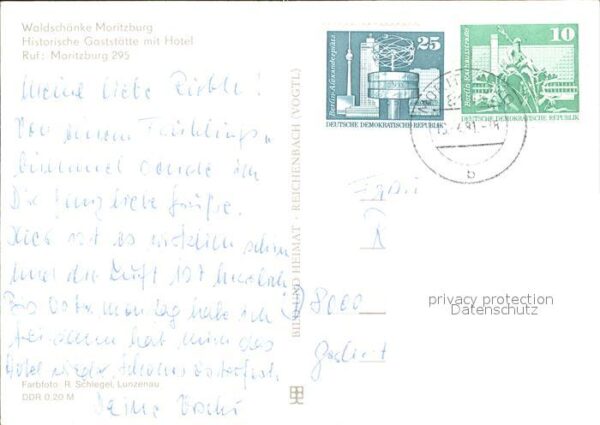 Waldschänke Moritzburg
Historische Gaststätte mit Hotel
Ruf: Moritzburg 295
Meine liebe
Von einem Frühlings-
bummel sende ich
Dir ganz liebe Grüße.
Hier ist es wirklich schön
und die Luft ist herrlich
Bis Ostermontag habe ich
frei dann hat mich das
Hotel wieder.
Deine
Farbfoto: R. Schlegel, Lunzenau
DDR 0,20 M
BILD UND HEIMAT · REICHENBACH (VOGTL)
Berlin-Alexanderplatz
25
DEUTSCHE DEMOKRATISCHE REPUBLIK
Berlin Rathausstraße
10
DEUTSCHE DEMOKRATISCHE REPUBLIK
b
8000
privacy protection
Datenschutz